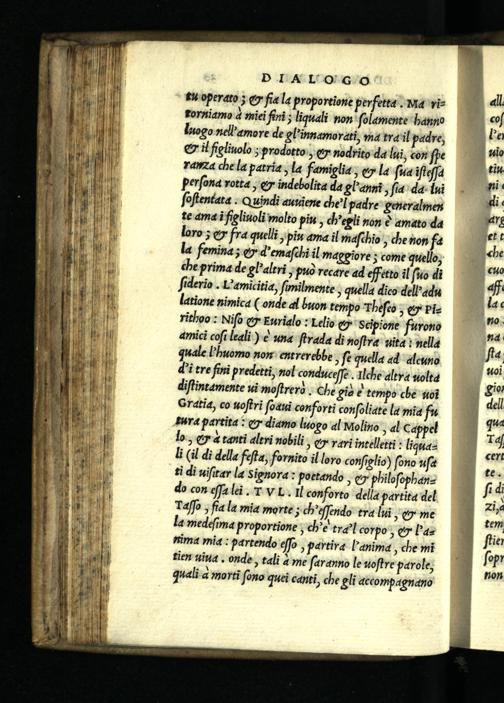 DIALOGO
tu operato; & fia la proportione perfetta. Ma ri-
torniamo à miei fini; liquali non solamente hanno
luogo nell'amore de gl'innamorati, ma tra il padre,
& il figliuolo; prodotto, & nodrito da lui, con spe
ranza che la patria, la famiglia, & la sua istessa
persona rotta, & indebolita da gl'anni, sia da lui
sostentata. Quindi auuiene che'l padre generalmen
te ama i figliuoli molto piu, ch'egli non è amato da
loro; & fra quelli, piu ama il maschio, che non fa
la femina; & d'emaschi il maggiore; come quello,
che prima de gl'altri, può recare ad effetto il suo di
siderio. L'amicitia, similmente, quella dico dell'adu
latione nimica (onde al buon tempo Theseo, & Pi-
rithoo: Niso & Eurialo: Lelio & Scipione furono
amici cosi leali) è una strada di nostra uita: nella
quale l'huomo non entrerebbe, se quella ad alcuno
d'i tre fini predetti, nol conducesse. Ilche altra uolta
distintamente ui mostrerò. Che già è tempo che uoi
Gratia, co uostri soaui conforti consoliate la mia fu
tura partita: & diamo luogo al Molino, al Cappel
lo, & à tanti altri nobili, & rari intelletti: liqua-
li (il di della festa, fornito il loro consiglio) sono usa
ti di uisitar la Signora: poetando, & philosophan-
do con essa lei. TVL. Il conforto della partita del
Tasso, fia la mia morte; ch'essendo tra lui, & me
la medesima proportione, ch'è tra'l corpo, & l'a-
nima mia: partendo esso, partira l'anima, che mi
tien uiua. onde, tali à me saranno le uostre parole,
quali à morti sono quei canti, che gli accompagnano